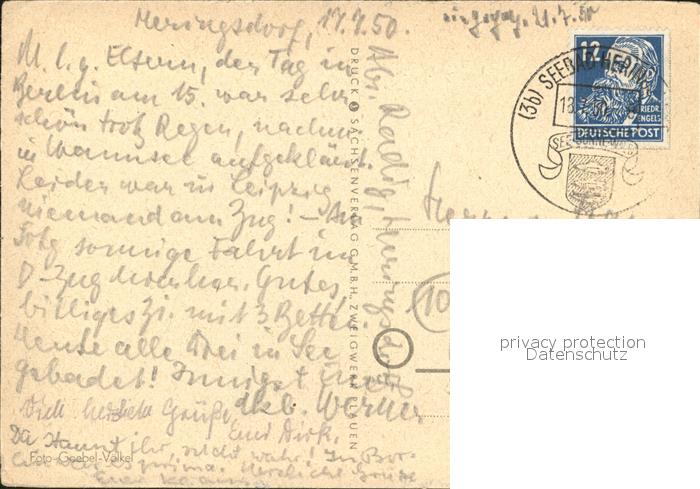 Heringsdorf, 17.7.50.
M. l. g. Eltern, der Tag in
Berlin am 15. war sehr
schön trotz Regen, nachm.
in Wannsee aufgeklärt.
Leider war in Leipzig
niemand am Zug! –
sonnige Fahrt im
D-Zug Gutes,
billiges Zi. mit 3 Betten.
Heute alle drei in See
gebadet! Innigst Euer
dkb. Werner
Viele herzliche Grüße
Euer Dirk.
Da staunt Ihr, nicht wahr! In
prima. Herzliche Grüße
Foto-Goebel-Völkel
DRUCK SACHSENVERLAG G.M.B.H. ZWEIGWERK PLAUEN
Abs. Radig, Heringsdorf
12
FRIEDR. ENGELS
DEUTSCHE POST
(3b) SEEBAD HERIN
(10
privacy protection
Datenschutz